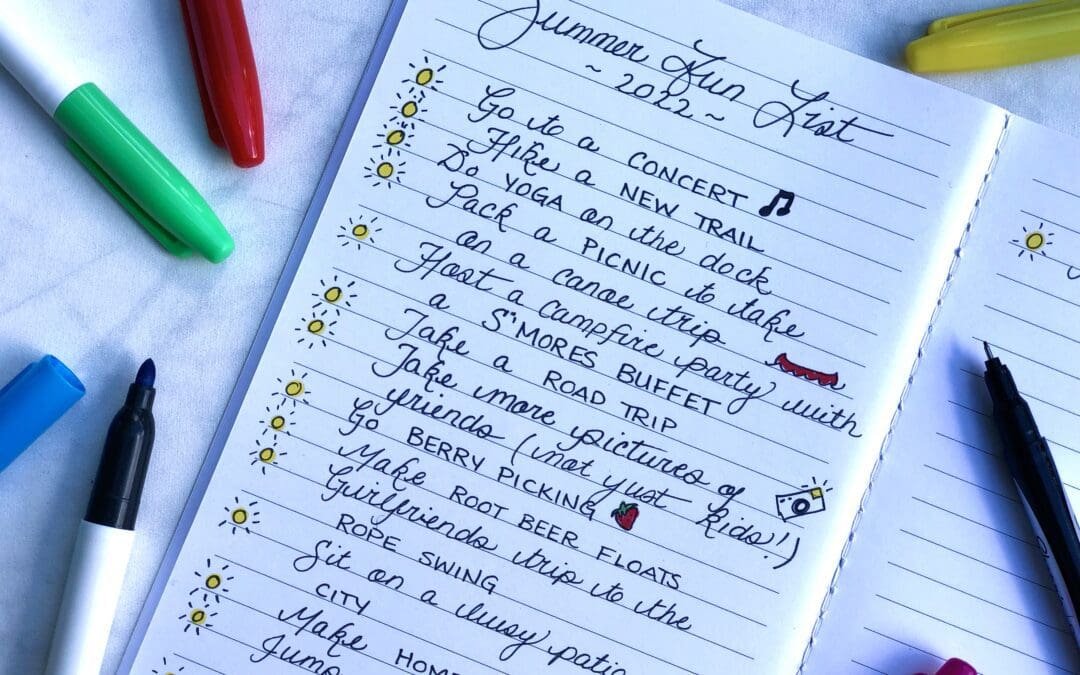 Summer Fun List
~ 2022 ~
Go to a CONCERT
Hike a NEW TRAIL
Do YOGA on the dock
Pack a PICNIC to take
on a canoe trip
Host a campfire party with
a S'MORES BUFFET
Take a ROAD TRIP
Take more pictures of
friends (not just kids!)
Go BERRY PICKING
Make ROOT BEER FLOATS
Girlfriends trip to the
ROPE SWING
Sit on a busy patio
CITY
Make HOME
Jump